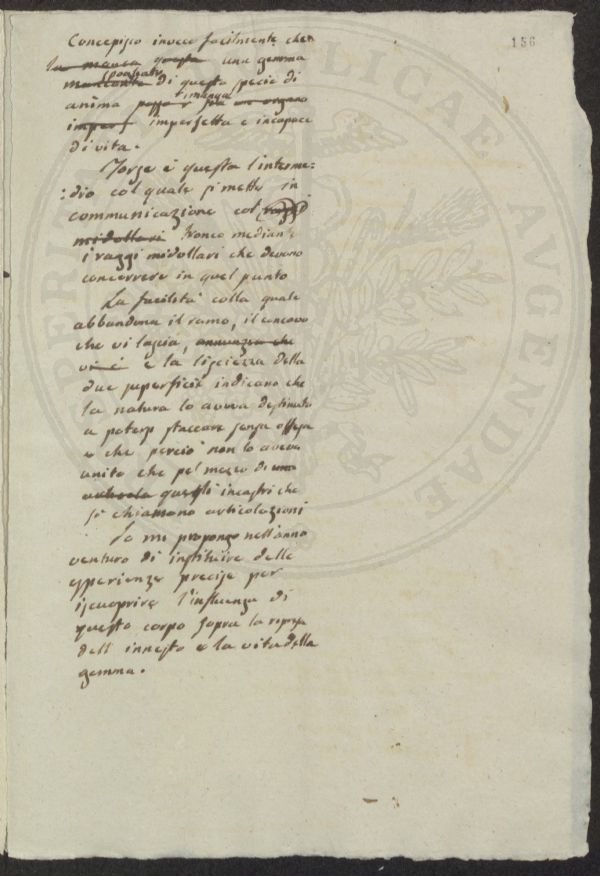 156
Concepisco invece facilmente che
la manca questa una gemma
spogliata
mancante di questa specie di
rimanga
anima possa r sia un organo
imperf imperfetta e incapace
di vita.
Forse è questa l'interme:
:dio col quale si mette in
communicazione col raggi
midollari tronco mediante
i raggi midollari che devono
concorrere in quel punto
La facilità colla quale
abbandona il ramo, il concavo
che vi lascia, annunzia che
vi è e la lisciezza della
due superficie indicano che
la natura lo aveva destinato
a potersi staccare senza offesa
e che perciò non lo aveva
unito che pel mezzo di una
questi incastri che
si chiamano articolazioni
Io mi propongo nell'anno
venturo di instituire delle
esperienze precise per
iscuoprire l'influenza di
questo corpo sopra la ripresa
dell'innesto e la vita della
gemma.
PUBLICAE
AVGENDAE
PERITA